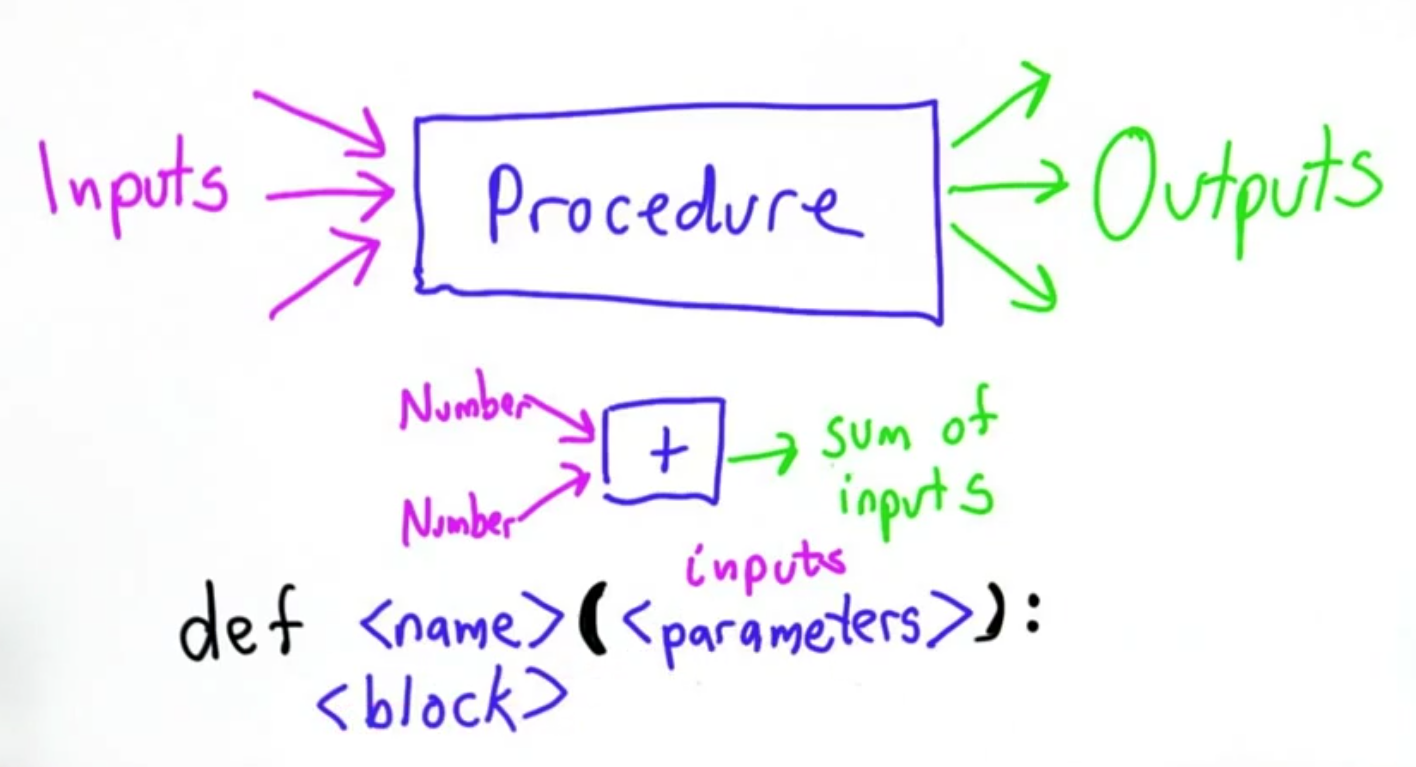 Inputs Procedure Outputs
Number
+
sum of
inputs
Number
inputs
def <name>(<parameters>):
<block>